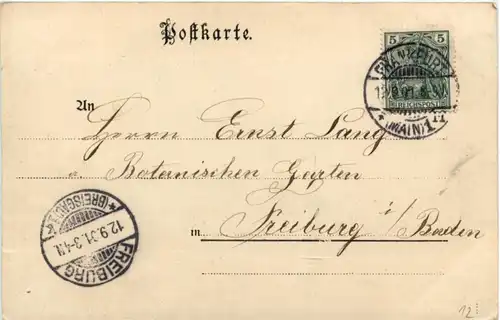 Postkarte.
5 5
FRANKFURT
(MAIN) 1
REICHSPOST
An
Herrn Ernst Lang
Botanischen Garten
in Freiburg i/Baden
(BREISGAU)
12.9.01.3-4N.
FREIBURG
12